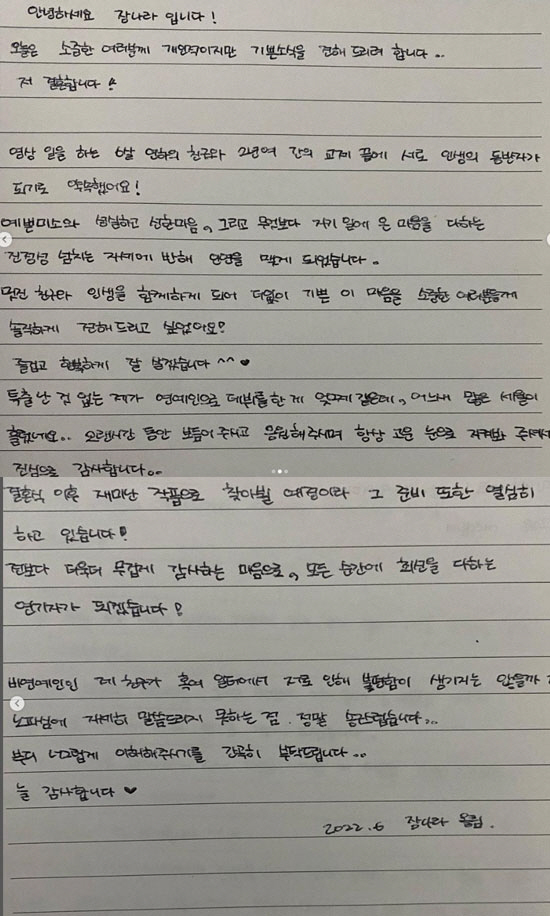 안녕하세요 장나라 입니다!
오늘은 소중한 여러분께 개인적이지만 기쁜소식을 전해 드리려 합니다..
저 결혼합니다!
영상 일을 하는 6살 연하의 친구와 2년여 간의 교제 끝에 서로 인생의 동반자가
되기로 약속했어요!
예쁜미소와 성실하고 선한마음, 그리고 무엇보다 자기 일에 온 마음을 다하는
진정성 넘치는 자세에 반해 인연을 맺게 되었습니다.
멋진 친구와 인생을 함께하게 되어 더없이 기쁜 이 마음을 소중한 여러분들께
솔직하게 전해드리고 싶었어요!
즐겁고 행복하게 잘 살겠습니다 ^^ ♥
특출난 것 없는 제가 연예인으로 데뷔를 한 게 엊그제 같은데, 어느새 많은 세월이
흘렀네요.. 오랜시간 동안 보듬어 주시고 응원해주시며 항상 고운 눈으로 지켜봐 주셔서
진심으로 감사합니다..
결혼식 이후 재미난 작품으로 찾아뵐 예정이라 그 준비 또한 열심히
하고 있습니다!
전보다 더욱더 무겁게 감사하는 마음으로, 모든 순간에 최선을 다하는
연기자가 되겠습니다!
비연예인인 제 친구가 혹여 일터에서 저로 인해 불편함이 생기지는 않을까
노파심에 자세히 말씀드리지 못하는 점, 정말 송구스럽습니다...
부디 너그럽게 이해해주시기를 간곡히 부탁드립니다..
늘 감사합니다 ♥
2022.6 장나라 올림.